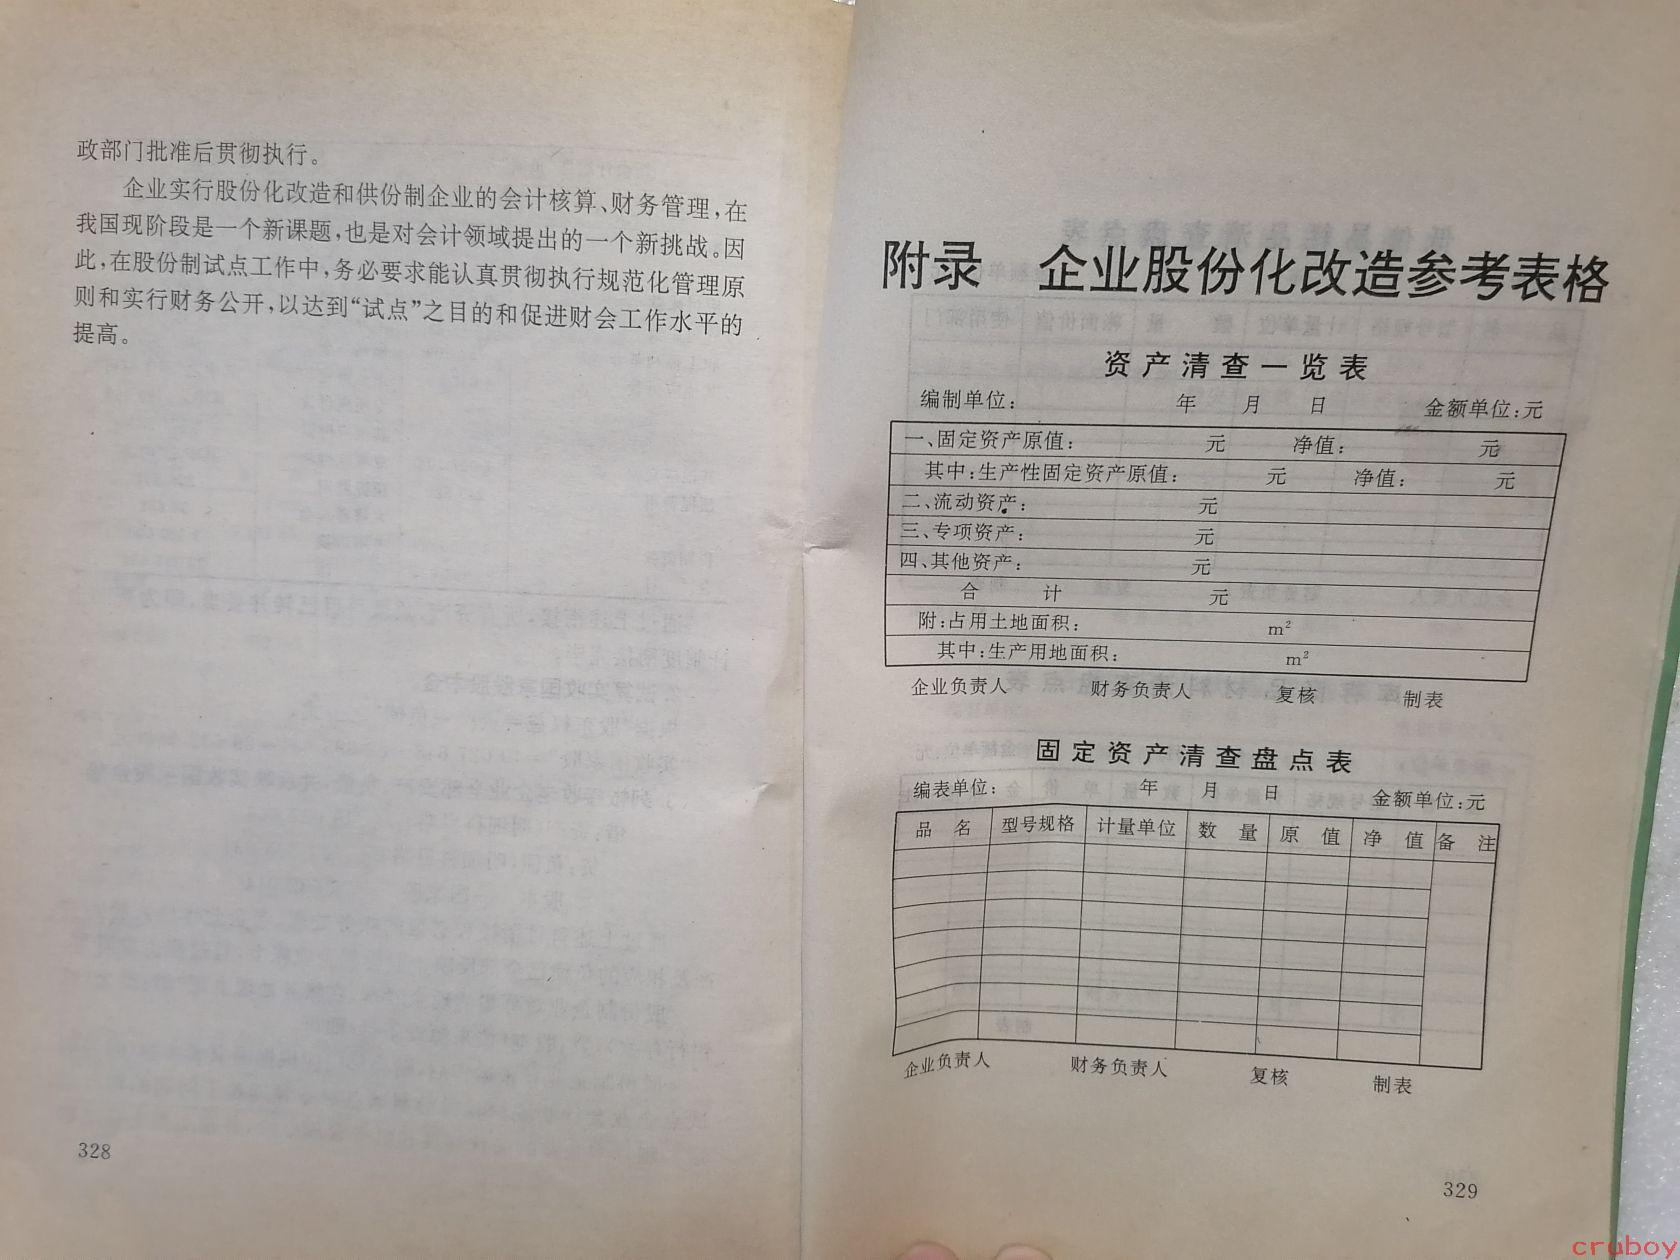 政部门批准后贯彻执行。
企业实行股份化改造和供份制企业的会计核算、财务管理,在
我国现阶段是一个新课题,也是对会计领域提出的一个新挑战。因
此,在股份制试点工作中,务必要求能认真贯彻执行规范化管理原
则和实行财务公开,以达到“试点”之目的和促进财会工作水平的
提高。
328
附录 企业股份化改造参考表格
资产清查一览表
编制单位: 年 月 日 金额单位:元
一、固定资产原值: 元 净值: 元
其中:生产性固定资产原值: 元 净值: 元
二、流动资产: 元
三、专项资产: 元
四、其他资产: 元
合 计 元
附:占用土地面积: m²
其中:生产用地面积: m²
企业负责人 财务负责人 复核 制表
固定资产清查盘点表
编表单位: 年 月 日 金额单位:元
品 名 型号规格 计量单位 数 量 原 值 净 值 备 注
企业负责人 财务负责人 复核 制表
329
cruboy